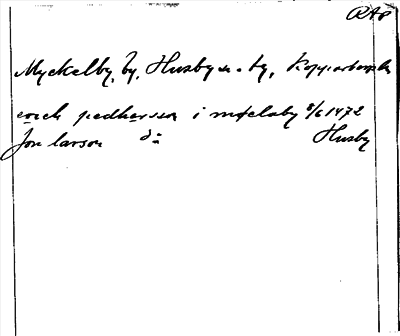 RAP
Myckelby, by, Husby sn. by, Kopparbergs län
erich pedhersson i mykelaby 8/6 1472
Jon larson d:o Husby